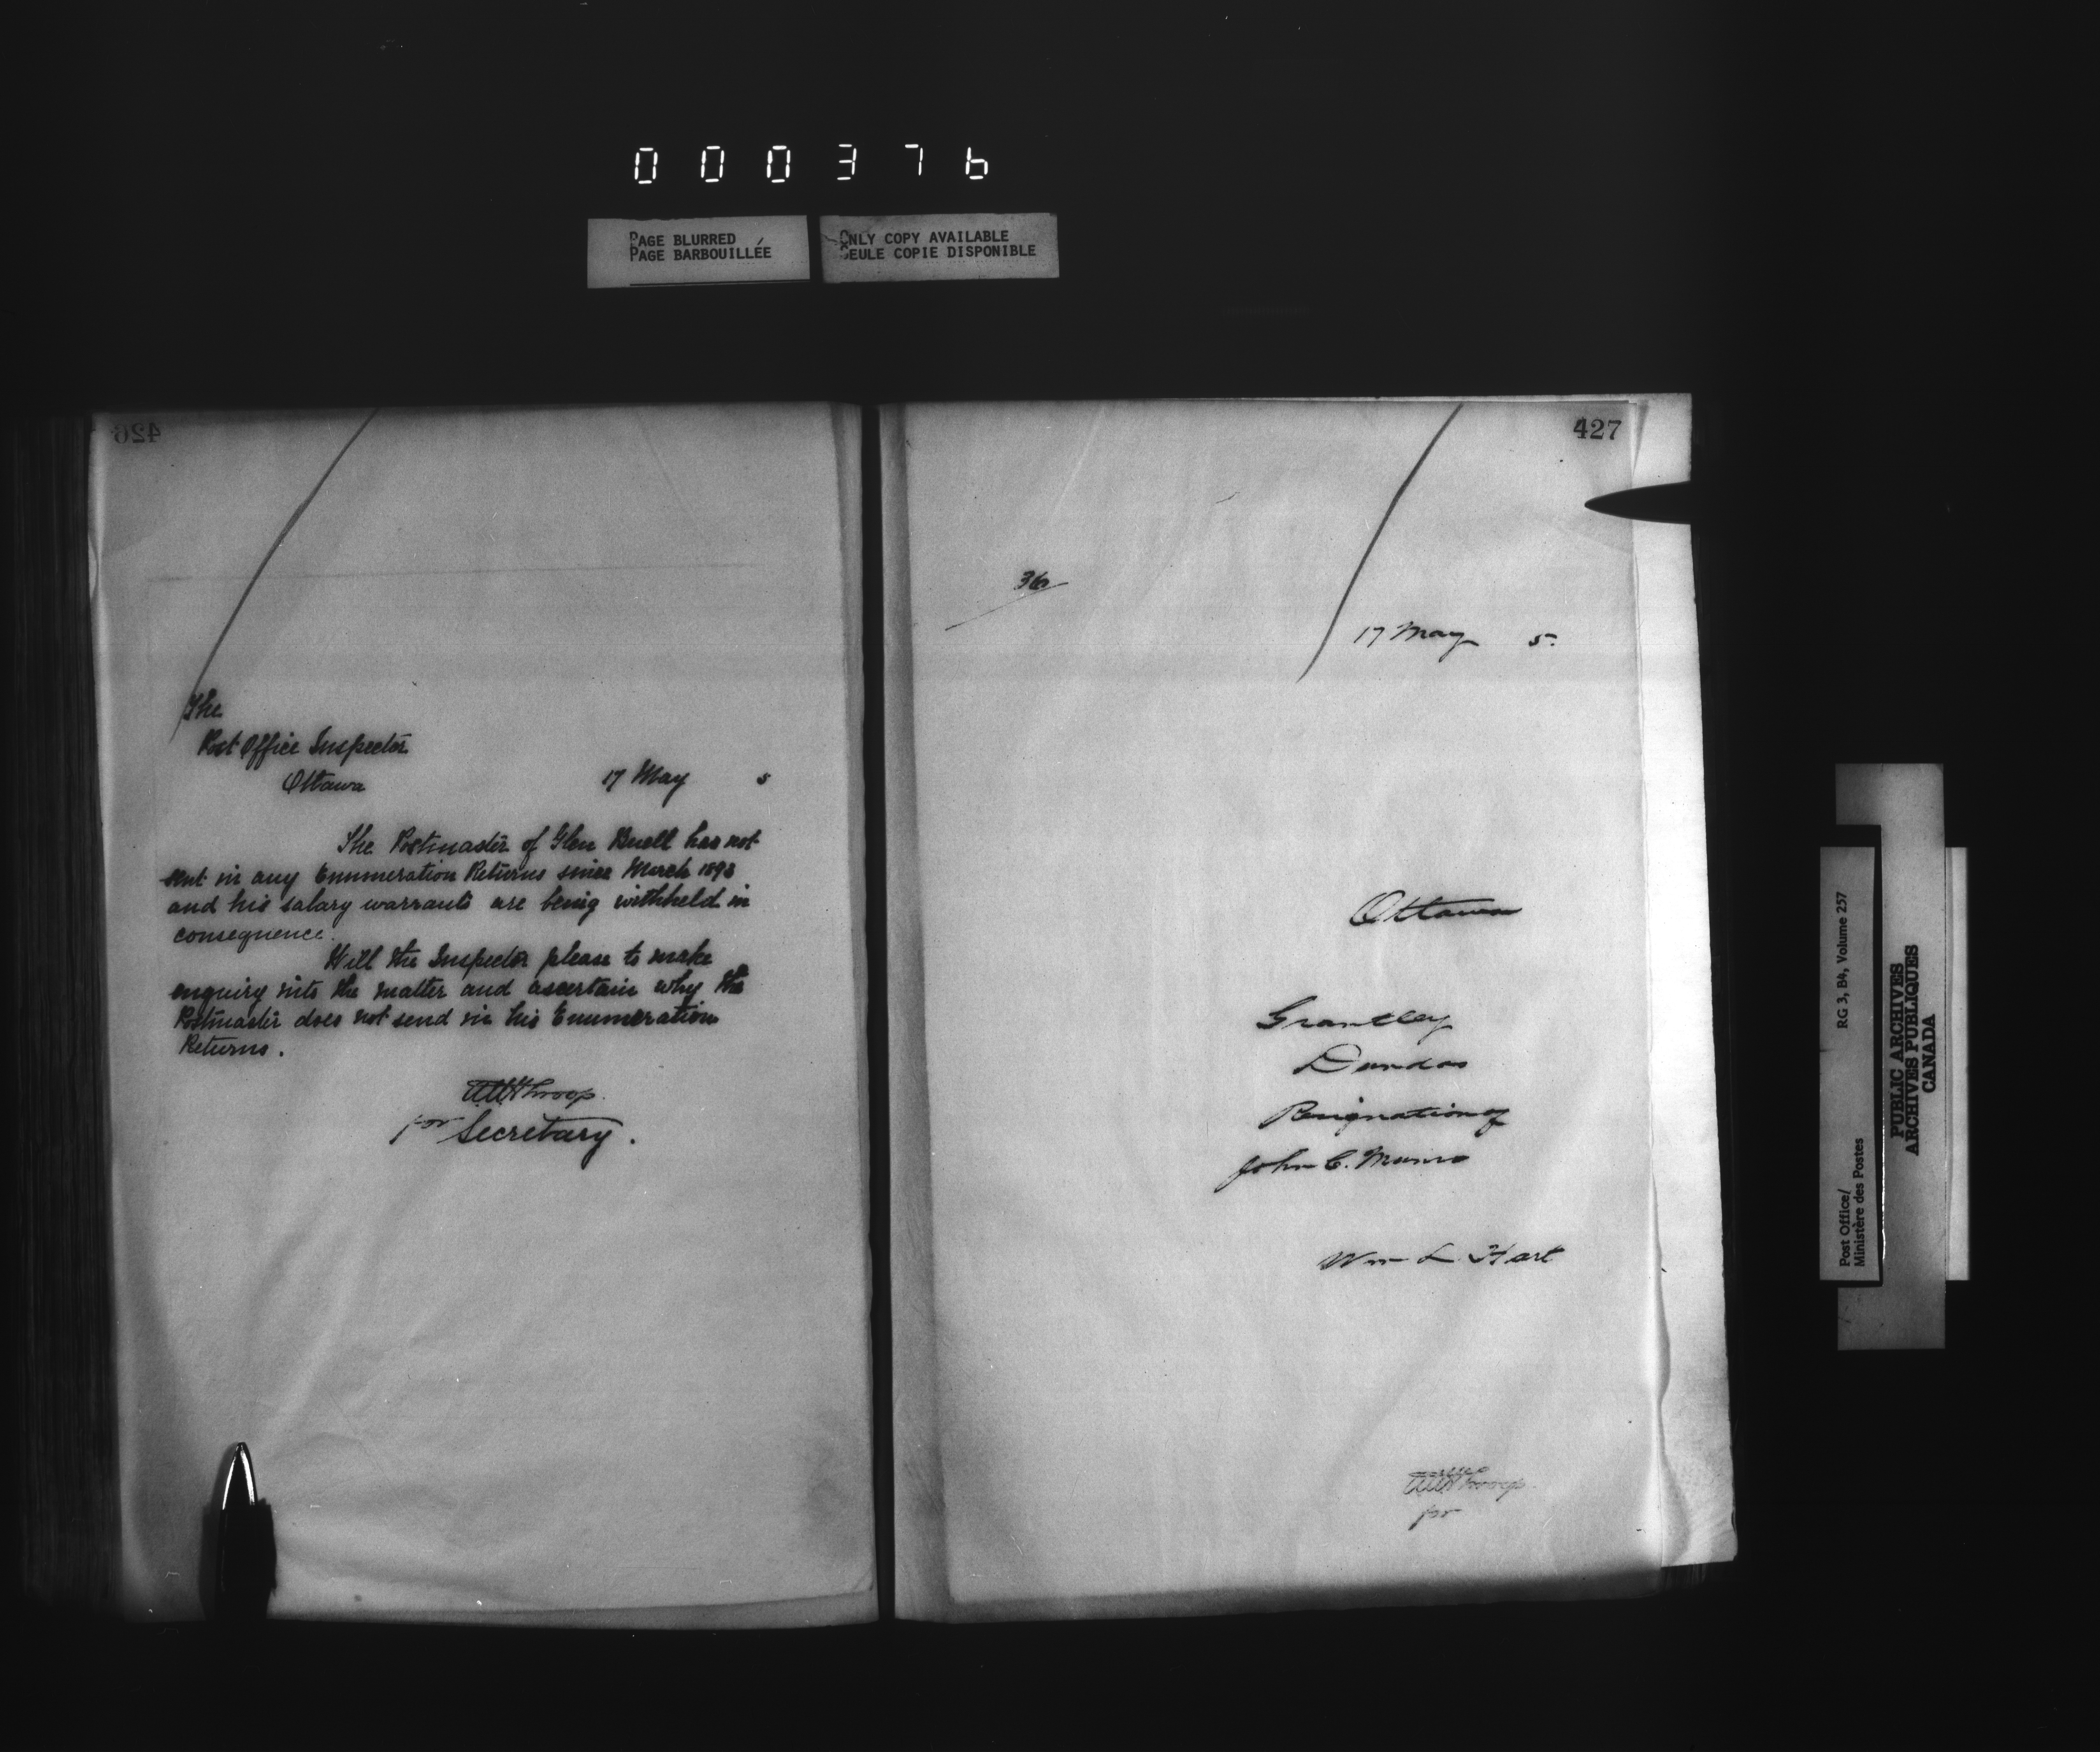 000376
PAGE BLURRED
PAGE BARBOUILLÉE
ONLY COPY AVAILABLE
SEULE COPIE DISPONIBLE
426
The
Post Office Inspector
Ottawa 17 May 5
The Postmaster of Glen Buell has not
sent in any Enumeration Returns since March 1893
and his salary warrants are being withheld in
consequence.
Will the Inspector please to make
enquiry into the matter and ascertain why the
Postmaster does not send in his Enumeration
Returns.
Throop.
for Secretary.
427
36
17 May 5.
Ottawa
Grantley
Dundas
Resignation of
John C. Munro
Wm L. Hart
Throop
for
Post Office/ RG 3, B4, Volume 257
Ministère des Postes
PUBLIC ARCHIVES
ARCHIVES PUBLIQUES
CANADA